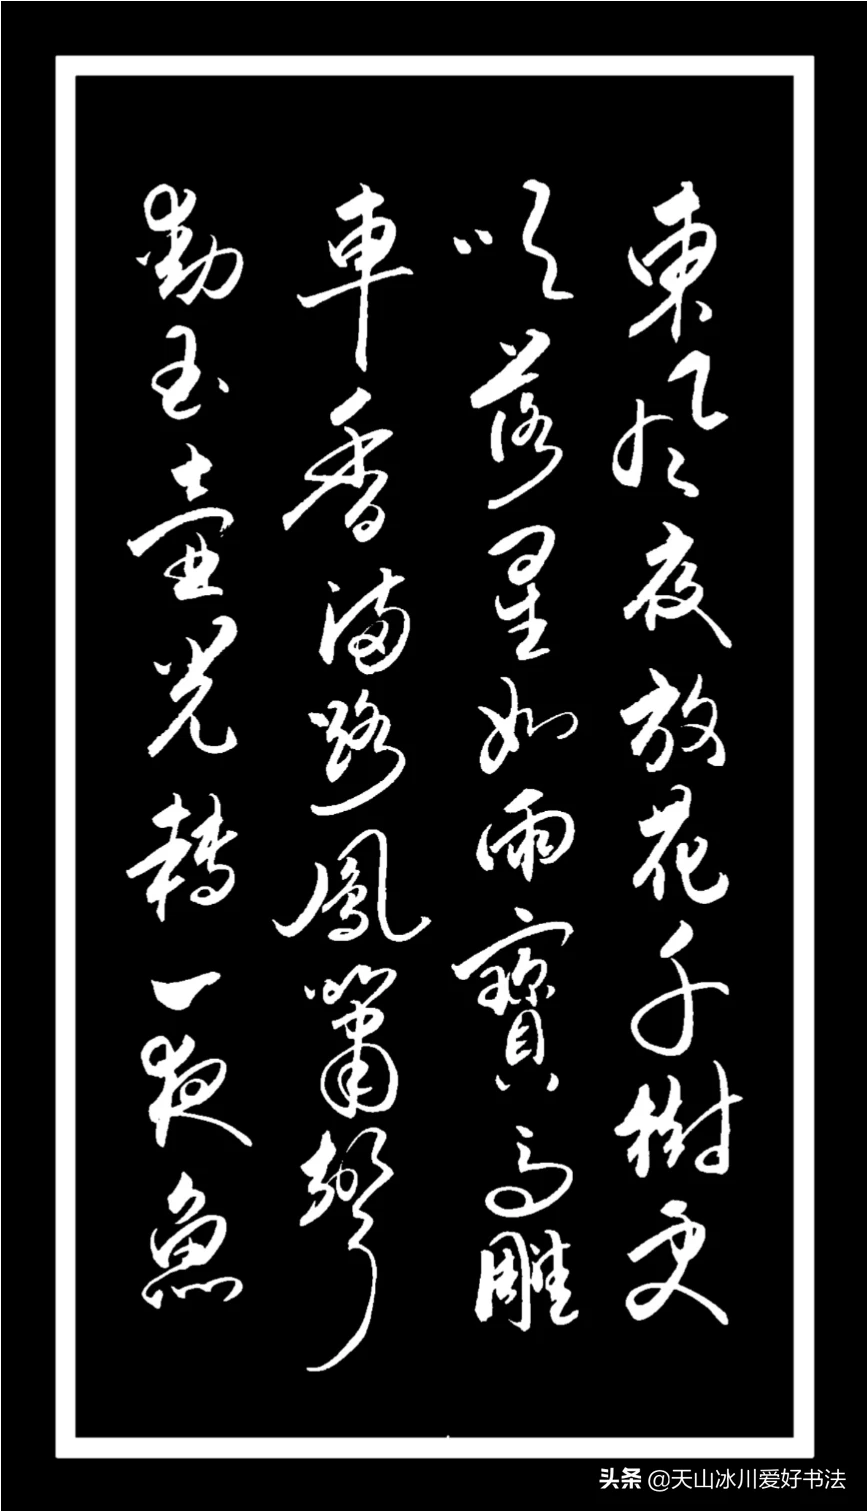 東風夜放花千樹更
吹落星如雨寶馬雕
車香滿路鳳簫聲
動玉壺光轉一夜魚
头条 @天山冰川爱好书法